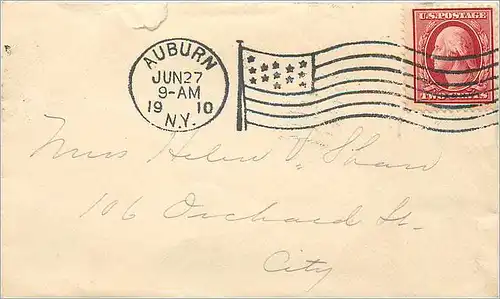 AUBURN
JUN27
9-AM
19 10
N.Y.
U.S. POSTAGE
TWO CENTS
Miss Helen V. Shaw
106 Orchard St.
City